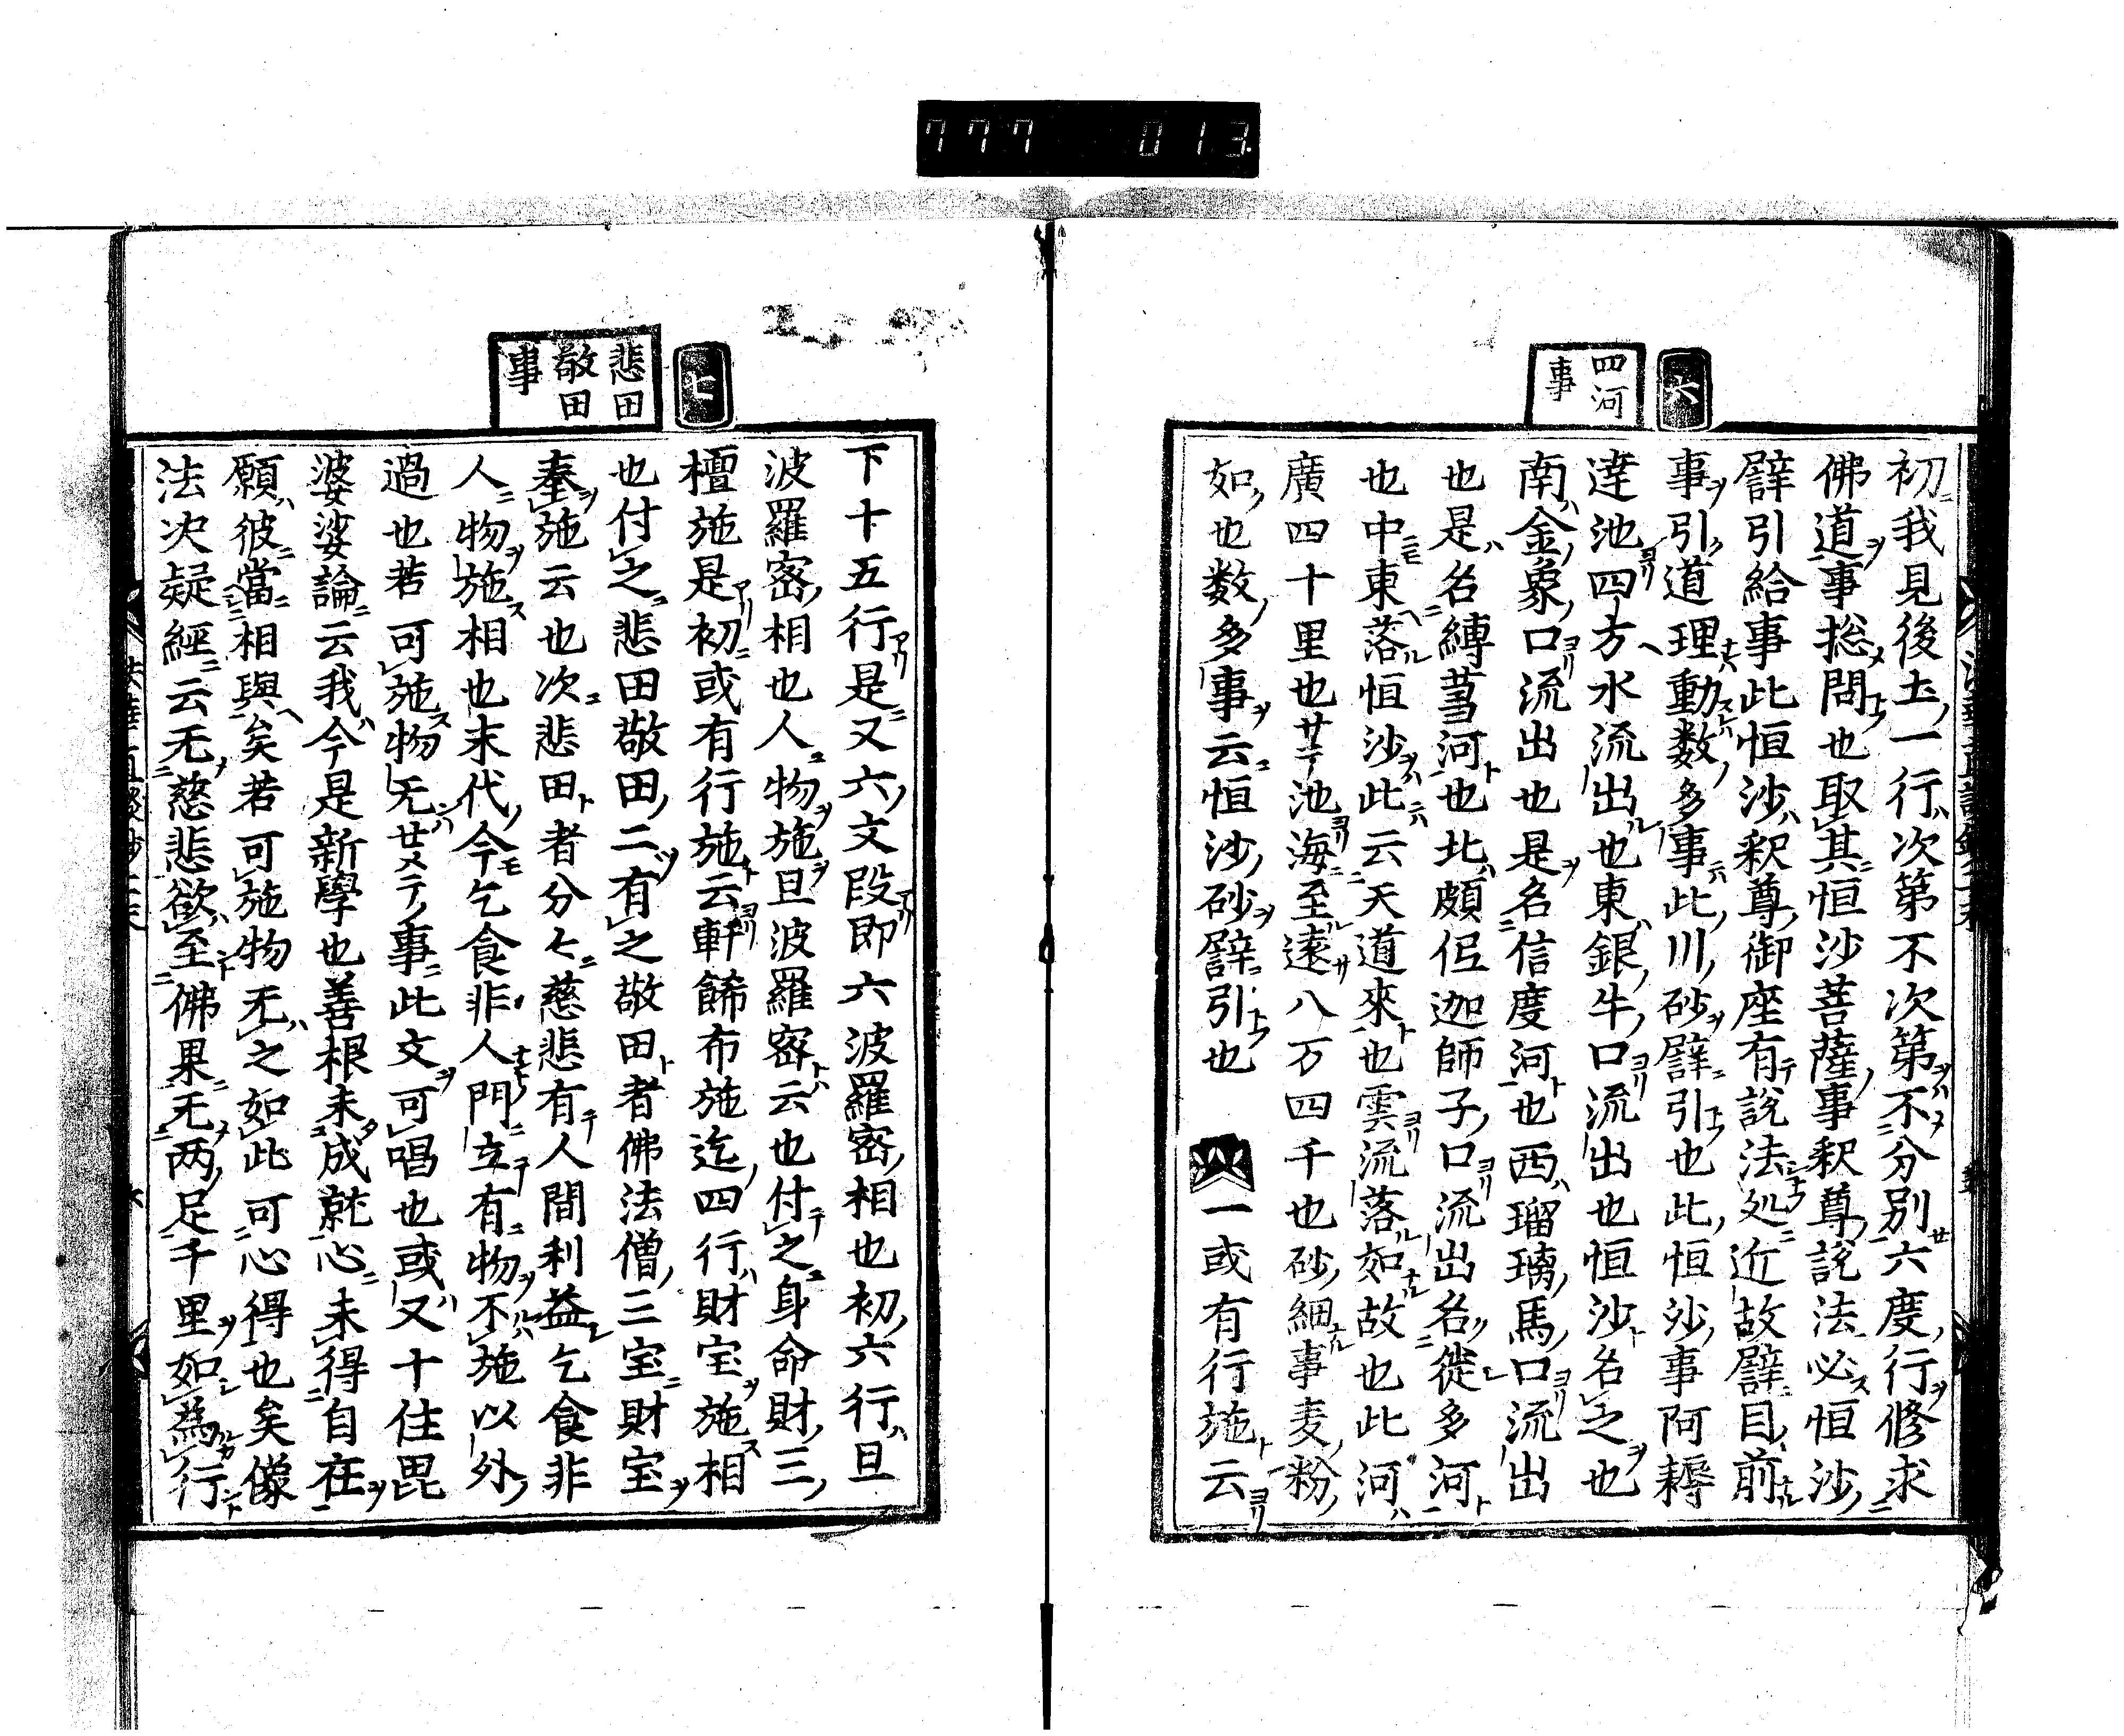 777 013
六
四河
事
初我見後土一行次第不次第不分別六度行修求
佛道事捴問也取其恒沙菩薩事釈尊説法必恒沙
譬引給事此恒沙釈尊御座有説法処近故譬目前
事引道理動数多事此川砂譬引也此恒沙事阿耨
達池四方水流出也東銀牛口流出也恒沙名之也
南金象口流出也是名信度河也西瑠璃馬口流出
也是名縛蒭河也北頗伍迦師子口流出名徙多河
也中東落恒沙此云天道來也雲流落如故也此河
廣四十里也サテ池海至遠八万四千也砂細事麦粉
如也数多事云恒沙砂譬引也 一或有行施云
七
悲田
敬田
事
下十五行是又六文段即六波羅密相也初六行旦
波羅密相也人物施旦波羅密云也付之身命財三
檀施是初或有行施云軒餝布施迄四行財宝施相
也付之悲田敬田二有之敬田者佛法僧三宝財宝
奉施云也次悲田者分七慈悲有人間利益乞食非
人物施相也末代今乞食非人門立有物不施以外
過也若可施物无サメテノ事此文可唱也或又十住毘
婆娑論云我今是新學也善根未成就心未得自在
願彼當相與矣若可施物无之如此可心得也矣像
法决疑經云无慈悲欲至佛果无两足千里如為行